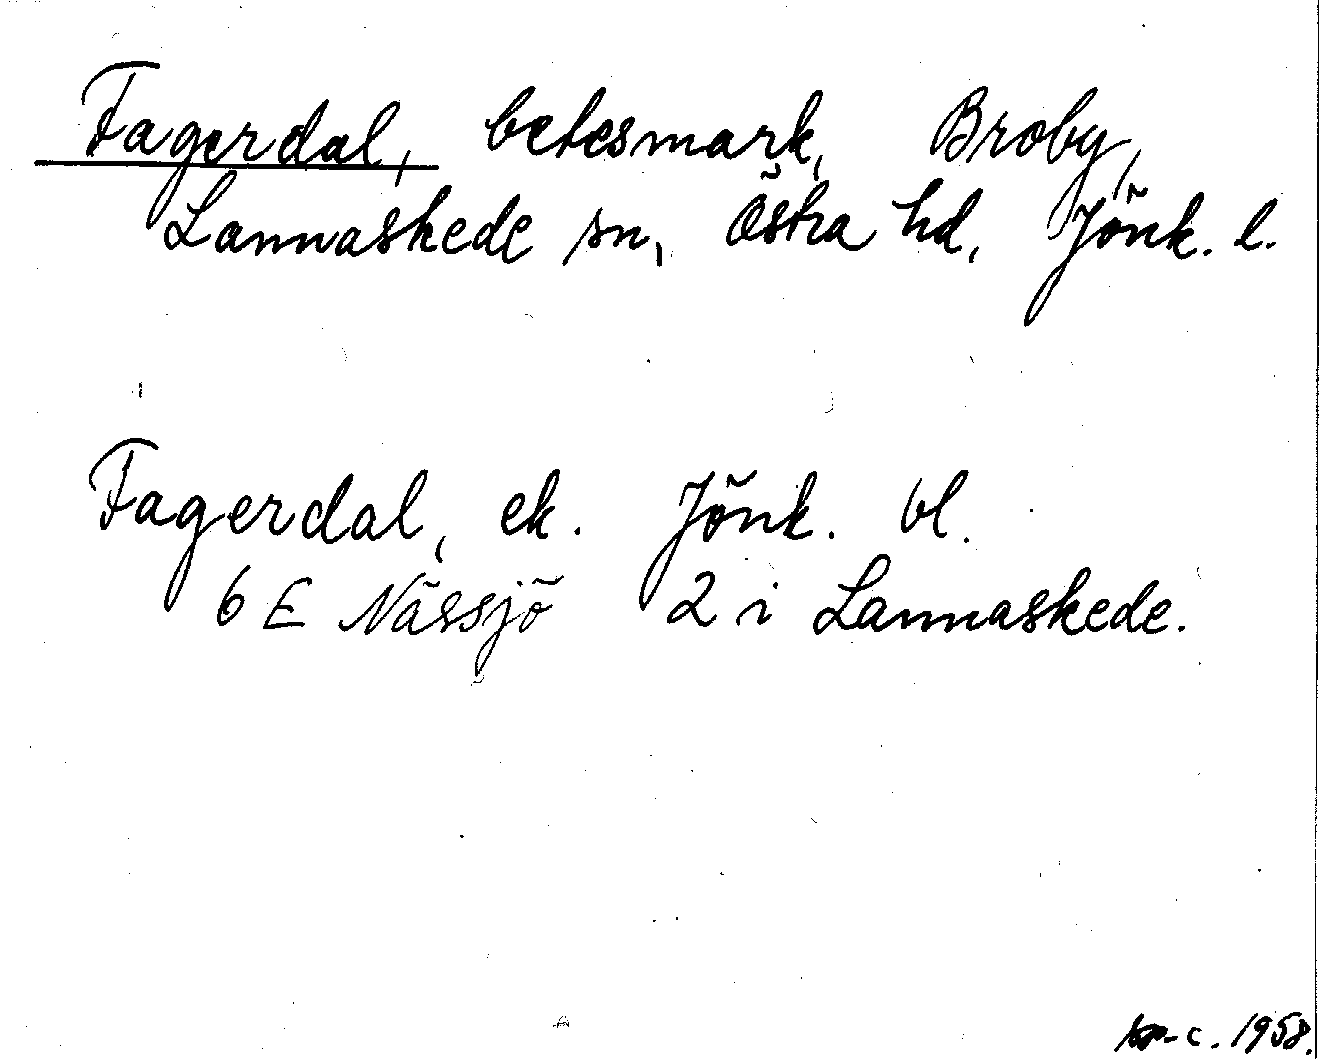 Fagerdal, betesmark, Broby,
Lannaskede sn, Östra hd, Jönk. l.
Fagerdal, ek. Jönk. bl.
6 E Nässjö 2 i Lannaskede.
c. 1958.